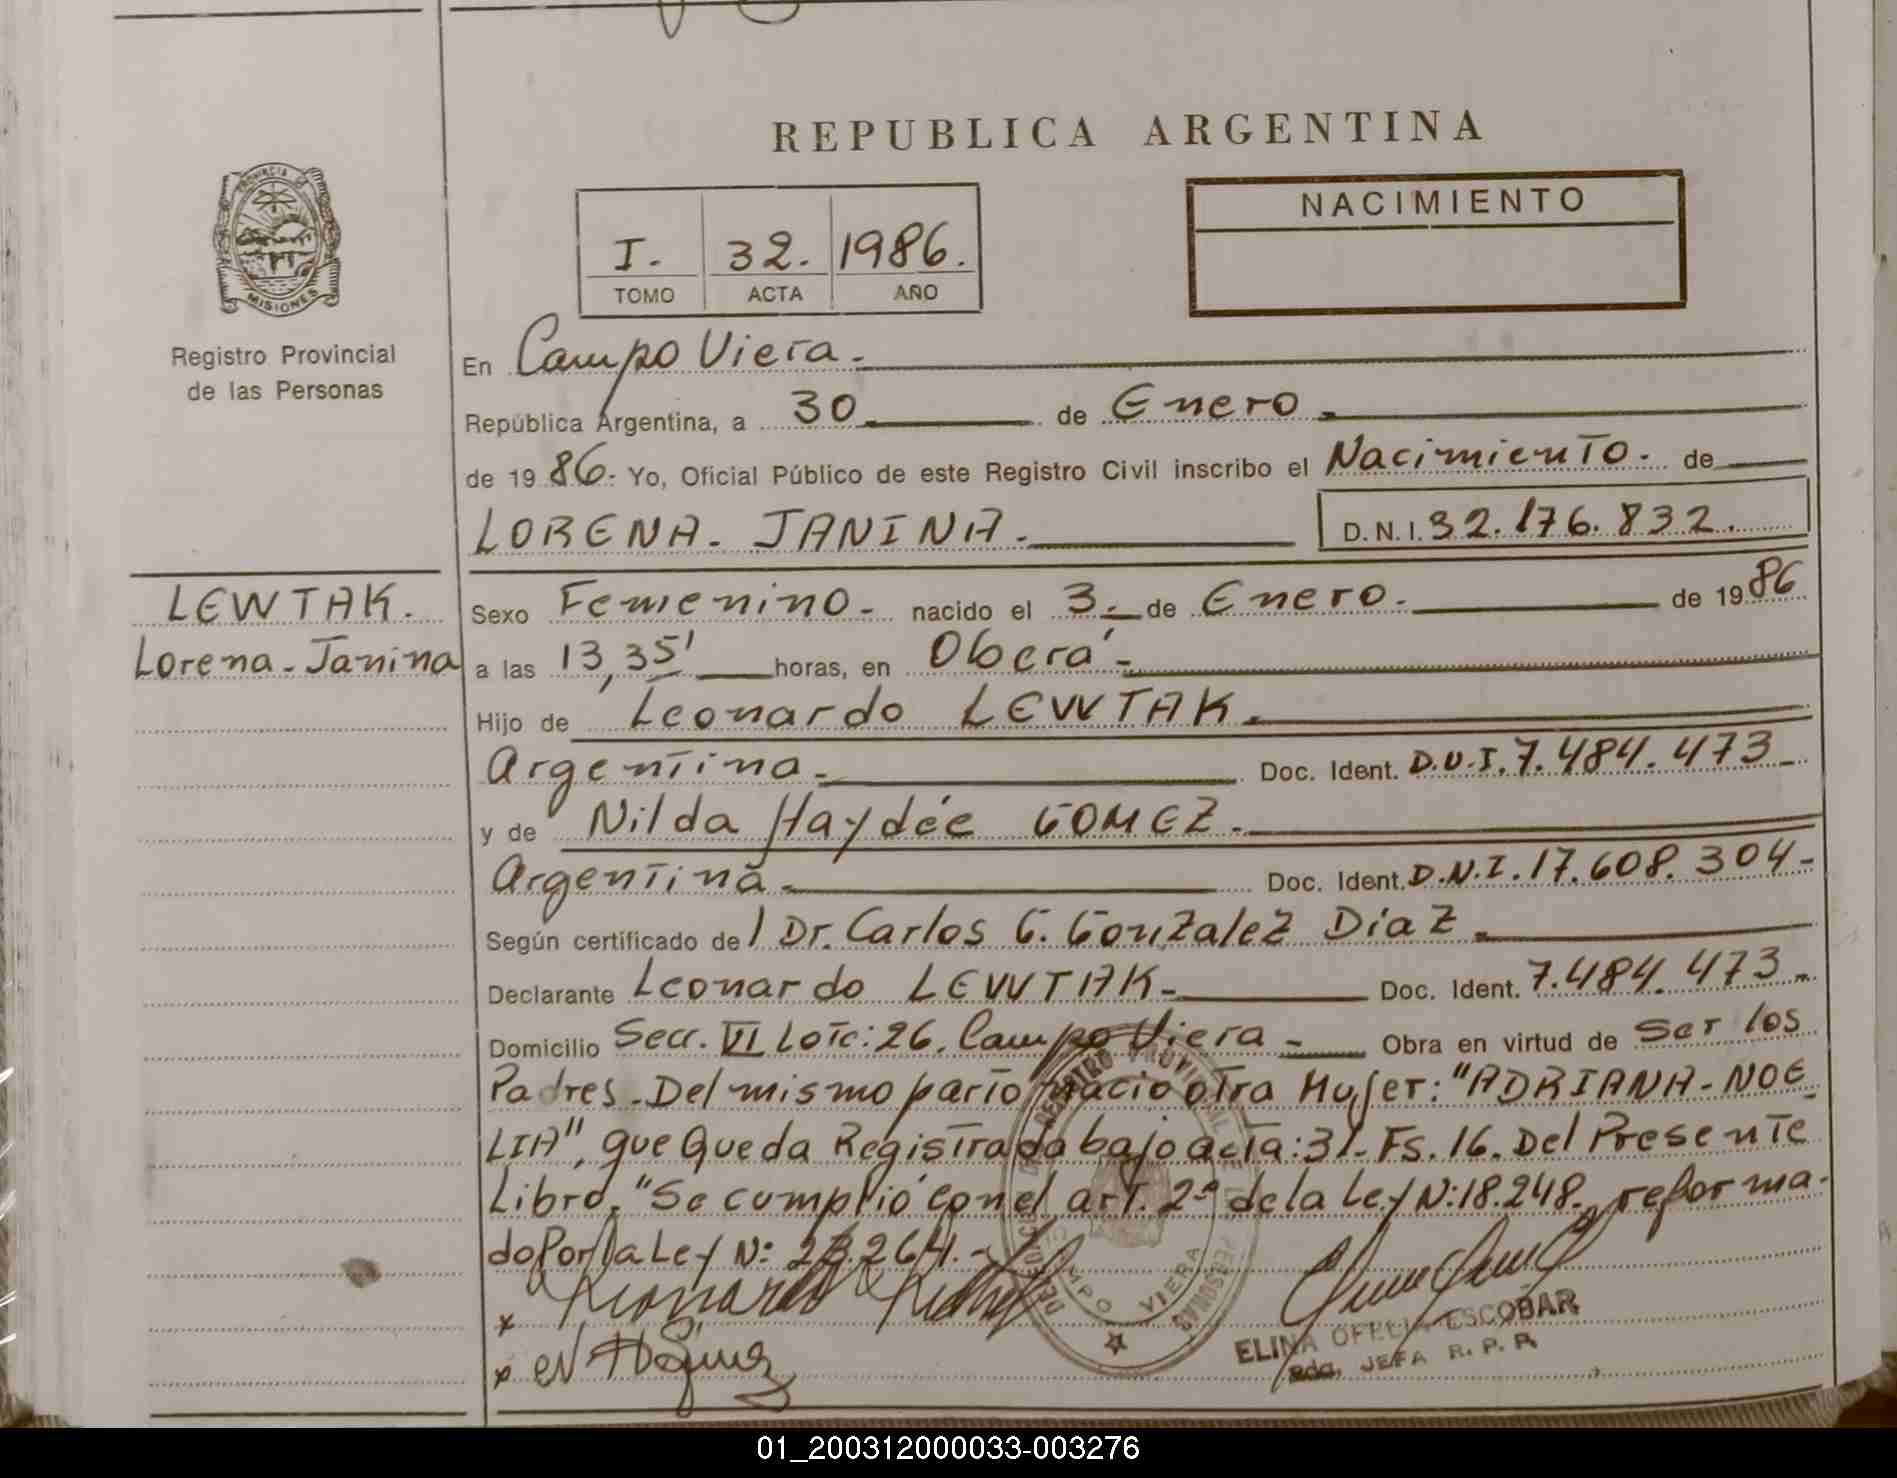 REPUBLICA ARGENTINA
PROVINCIA DE
MISIONES
Registro Provincial
de las Personas
I. 32. 1986.
TOMO ACTA AÑO
NACIMIENTO
En Campo Viera.
República Argentina, a 30 de Enero.
de 19 86. Yo, Oficial Público de este Registro Civil inscribo el Nacimiento. de
LORENA. JANINA. D.N.I. 32.176.832.
LEWTAK.
Lorena-Janina
Sexo Femenino. nacido el 3. de Enero. de 19 86
a las 13,35' horas, en Oberá.
Hijo de Leonardo LEWTAK.
Argentina. Doc. Ident. D.U.I. 7.484.473
y de Nilda Haydée GOMEZ.
Argentina. Doc. Ident. D.N.I. 17.608.304-
Según certificado de/ Dr. Carlos G. Gonzalez Diaz.
Declarante Leonardo LEWTAK- Doc. Ident. 7.484.473
Domicilio Secc. VI Lote: 26. Campo Viera- Obra en virtud de Ser los
Padres. Del mismo parto nacio otra Mujer: "ADRIANA-NOE
LIA", que Queda Registrada bajo acta: 31. Fs. 16. Del Presente
Libro. "Se cumplió con el art. 2º de la Ley N: 18.248. reforma-
do Por la Ley N: 23.264.-
x
x
REGISTRO PROVINCIAL DE LAS PERSONAS
CAMPO VIERA
ELINA OFELIA ESCOBAR
JEFA R. P. P.
01_200312000033-003276